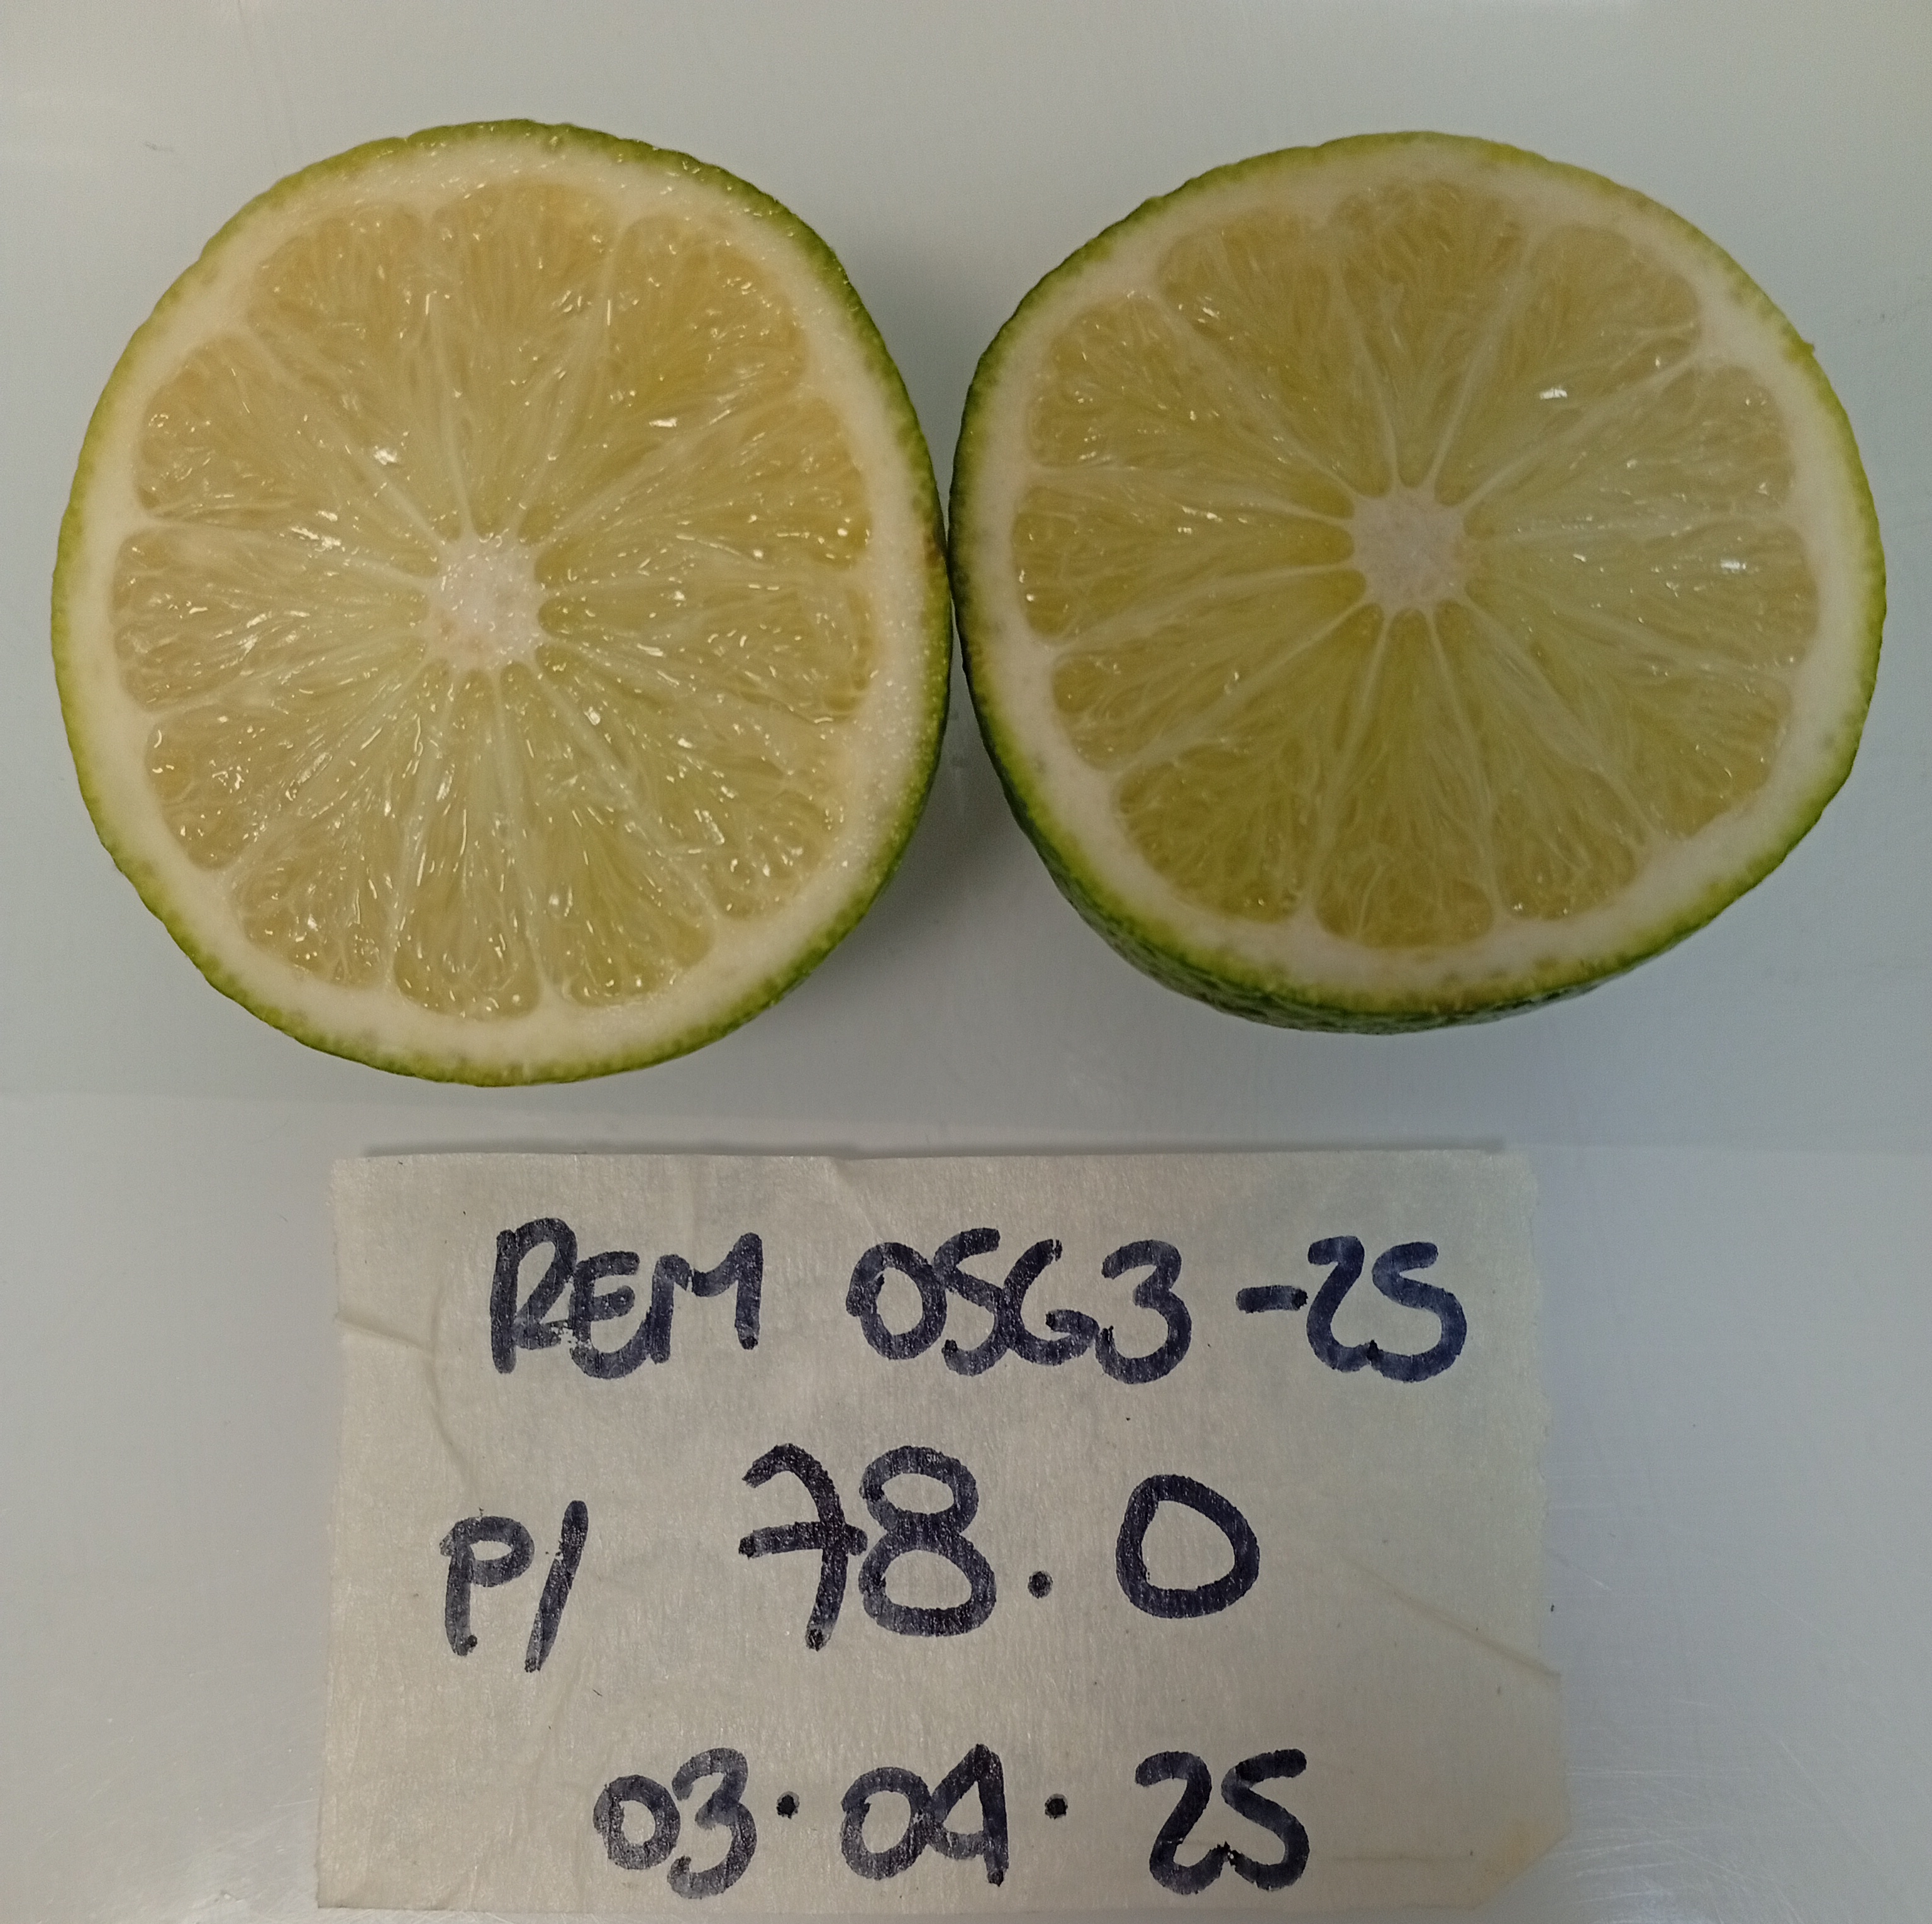 REM 0563-25
P/ 78.0
03.04.25